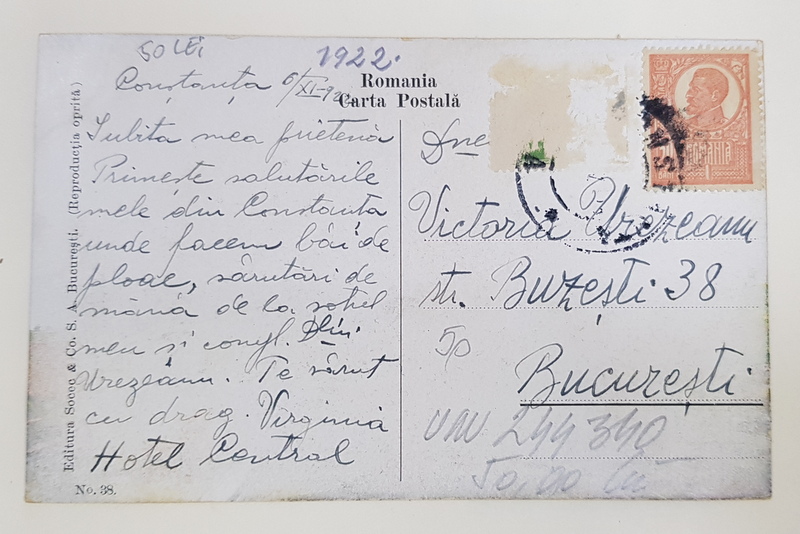 50 LEI
1922.
Constanța 6/XI-922
Romania
Carta Postală
Iubita mea prietenă
Primește salutările
mele din Constanta
unde facem băi de
ploae, sărutări de
mână de la soțul
meu și compl. Dlui.
Urezeanu. Te sărut
cu drag. Virginia
Hotel Central
Dnei
Victoria Urezeanu
str. Buzești 38
50
București
UNU 244340
50,00 lei
Editura Socec & Co. S. A. Bucuresti. (Reproducția oprită)
No. 38.
ROMANIA